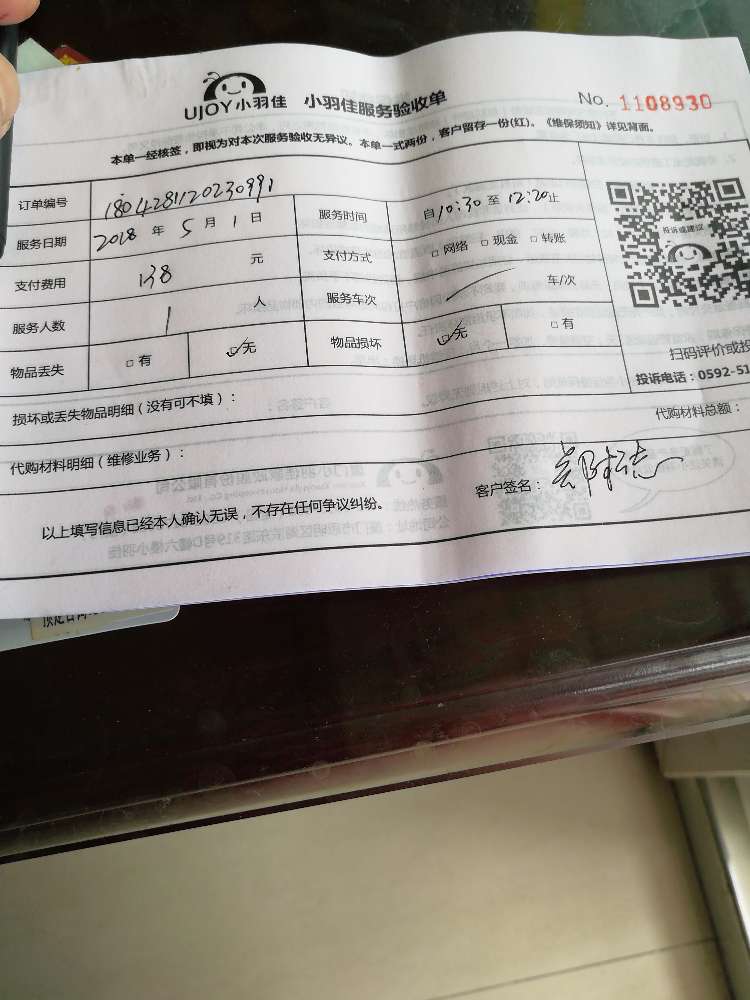 UJOY小羽佳 小羽佳服务验收单 No. 1108930
本单一经核签，即视为对本次服务验收无异议。本单一式两份，客户留存一份(红)。《维保须知》详见背面。
订单编号 1804281120230991 服务时间 自10:30至12:20止
服务日期 2018 年 5 月 1 日 支付方式 □ 网络 □ 现金 □ 转账
支付费用 138 元 服务车次 车/次
服务人数 1 人 物品损坏 ☑无 □ 有
物品丢失 □ 有 ☑无
投诉或建议
扫码评价或投
投诉电话：0592-51
损坏或丢失物品明细（没有可不填）：
代购材料明细（维修业务）： 代购材料总额：
以上填写信息已经本人确认无误，不存在任何争议纠纷。 客户签名：